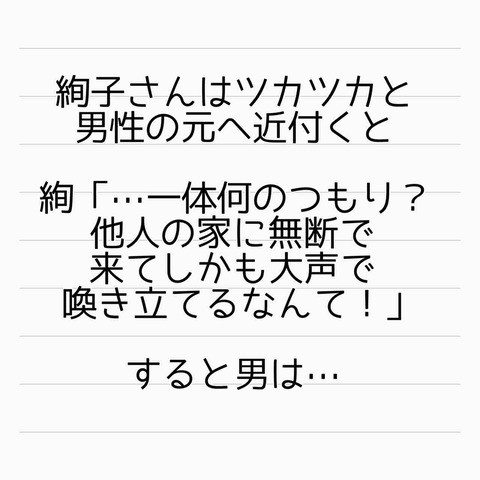 絢子さんはツカツカと
男性の元へ近付くと
絢「…一体何のつもり？
他人の家に無断で
来てしかも大声で
喚き立てるなんて！」
すると男は…